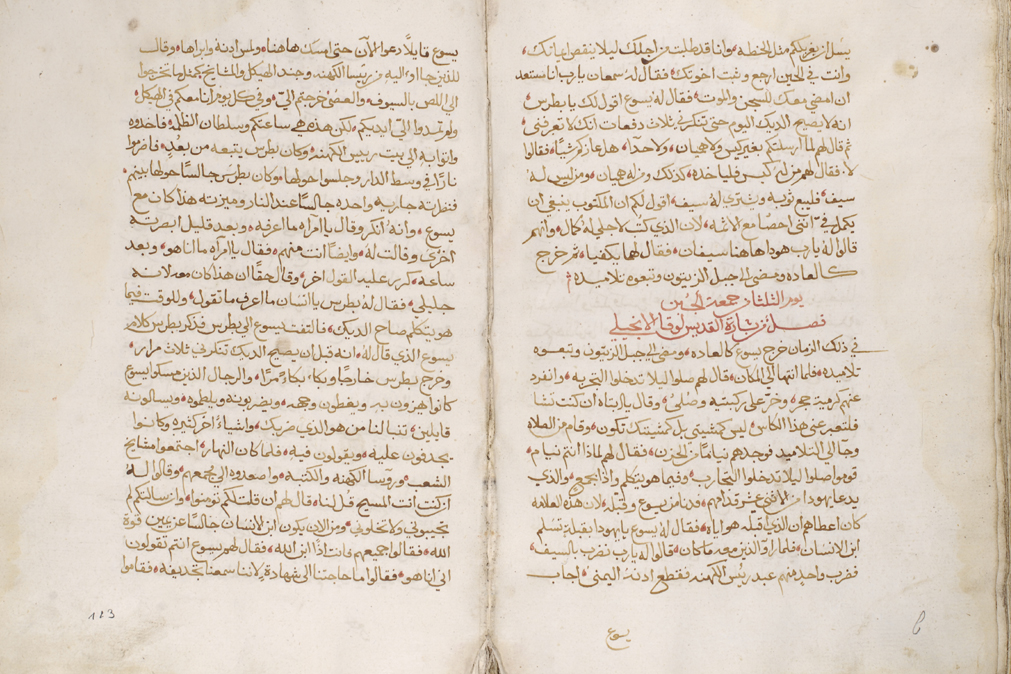 يسل ان يغربلكم مثل الحنطه وانا قد طلبت من اجلك ليلا ينقص ايمانك
وانت في الحين ارجع وثبت اخوتك فقال له سمعان يارب انا مستعد
ان امضي معك للسجن وللموت فقال له يسوع اقول لك يا بطرس
انه لا يصيح الديك اليوم حتى تنكرني ثلاث دفعات انك لا تعرفني
ثم قال لهم لما ارسلتكم بغير كيس ولا هميان ولا حذا هل عازكم شيا فقالوا
لا فقال لهم من له كيس فلياخذه كذلك ومن له هميان ومن ليس له
سيف فليبع ثوبه ويشتري له سيف اقول لكم ان المكتوب ينبغي ان
يكمل في انني احصا مع الاثمه لان الذي كتب لاجلي له كمال وانهم
قالوا له يارب هوذا هاهنا سيفان فقال لهما يكفيا ثم خرج
كالعاده ومضى الى جبل الزيتون وتبعوه تلاميذه
يوم الثلثا من جمعة الجبن
فصل من بشارة القديس لوقا الانجيلي
في ذلك الزمان خرج يسوع كالعاده ومضى الى جبل الزيتون وتبعوه
تلاميذه فلما انتها الى المكان قال لهم صلوا ليلا تدخلوا التجربه وانفرد
عنهم كرمية حجر وخر على ركبتيه وصلى وقال يا ابتاه ان كنت تشا
فلتعبر عني هذا الكاس ليس كمشيتي بل كمشيتك تكون وقام من الصلاه
وجا الى التلاميذ فوجدهم نياما من الحزن فقال لهم لماذا انتم نيام
قوموا صلوا ليلا تدخلوا التجارب وفيما هو يتكلم واذا بجمع والذي
يدعا يهودا من الاثني عشر قدامهم فدنا من يسوع وقبله لان هذه العلامه
كان اعطاهم ان الذي اقبله هو اياه فقال له يسوع يا يهودا بقبلة تسلم
ابن الانسان فلما راو الذين معه ما كان قالوا له يارب نضرب بالسيف
فضرب واحد منهم عبد ريس الكهنه فقطع اذنه اليمنى اجاب
يسوع
يسوع قايلا دعوا الان حتى امسك هاهنا ولمس اذنه وابراها وقال
للذين جاوا اليه من ريسا الكهنه وجند الهيكل والمشايخ كمثل ما تخرجوا
الى اللص بالسيوف والعصي خرجتم الي وفي كل يوم انا معكم في الهيكل
ولم تمدوا الي ايديكم ولكن هذه هي ساعتكم وسلطان الظلمه فاخذوه
واتوا به الى بيت رييس الكهنه وكان بطرس يتبعه من بعد فاضرموا
نارا في وسط الدار وجلسوا حولها وكان بطرس جالسا حولها بينهم
فنظرته جاريه واحده جالسا عند النار وميزته هذا كان مع
يسوع وانه انكر وقال يا امراه ما اعرفه وبعد قليل ابصرته
اخرى وقالت له وايضا انت منهم فقال يا امراه ما انا هو وبعد
ساعه كرر عليه القول اخر وقال حقا ان هذا كان معه لانه
جليلي فقال له بطرس يا انسان ما اعرف ما تقول وللوقت فيما
هو يتكلم صاح الديك فالتفت يسوع الى بطرس فذكر بطرس كلام
يسوع الذي قال له انه قبل ان يصيح الديك تنكرني ثلاث مرار
وخرج بطرس خارجا وبكا بكاء مرا والرجال الذين مسكوا يسوع
كانوا يهزون به ويغطون وجهه ويضربونه ويلطموه ويسالونه
قايلين تنبا لنا من هو الذي ضربك واشياء اخر كثيره وكانوا
يجدفون عليه ويقولون فيه فلما كان النهار اجتمعوا مشايخ
الشعب وروسا الكهنه والكتبه واصعدوه الى مجمعهم وقالوا له
ان كنت انت المسيح قل لنا قال لهم ان قلت لكم تومنوا وان سالتكم لم
تجيبوني ولا تخلوني ومن الان يكون ابن الانسان جالسا عن يمين قوة
الله فقالوا جميعهم فانت اذا ابن الله فقال لهم يسوع انتم تقولون
اني انا هو فقالوا ما حاجتنا الى شهادة لاننا سمعنا تجديفه فقاموا
123